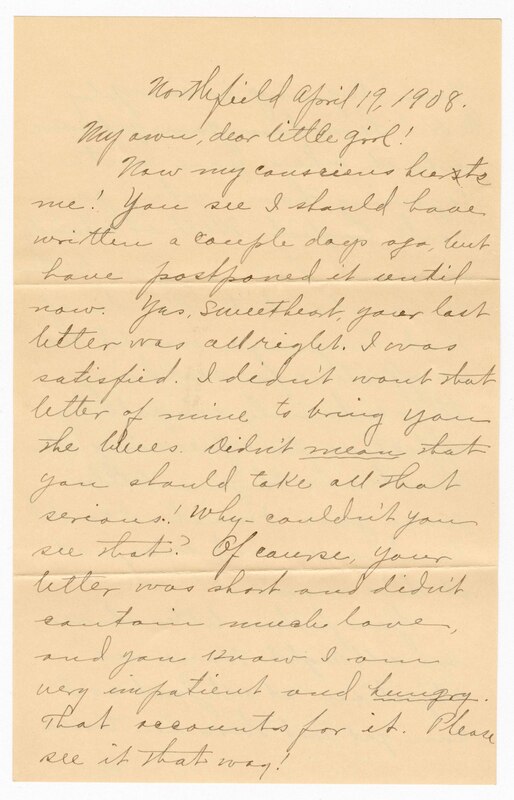 Northfield April 19, 1908.
My own, dear little girl!
Now my consciens hursts
me! You see I should have
written a couple days ago, but
have postponed it until
now. Yes, sweetheat, your last
letter was allright. I was
satisfied. I didn't want that
letter of mine to bring you
the blues. Didn't mean that
you should take all that
serious! Why - couldn't you
see that? Of course, your
letter was short and didn't
contain much love,
and you know I am
very impatient and hungry.
That accounts for it. Please
see it that way!